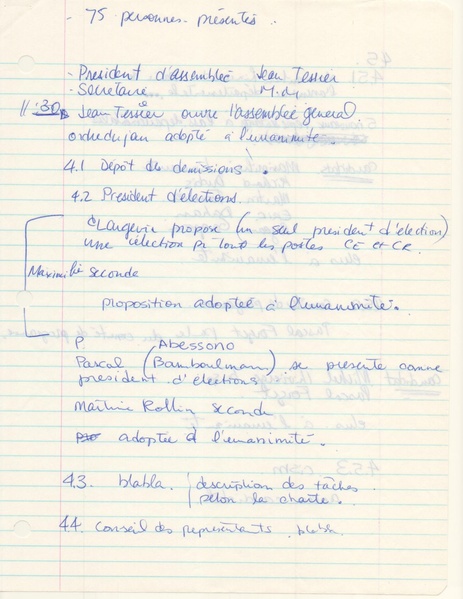 - 75 personnes présentes.
- Président d'assemblée Jean Tessier
- Secrétaire
11:30 Jean Tessier ouvre l'assemblée général.
ordre du jour adopté à l'unanimité.
4.1 Dépôt des démissions.
4.2 Président d'élections.
Langevin propose (un seul président d'élection)
une élection pr tout les postes CE et CR.
seconde
proposition adoptée à l'unanimité.
P Abessono
Pascal (Bamboulmann) se présente comme
président d'élections
Martine Rollin seconde
adoptée à l'unanimité.
4.3. blabla. description des tâches
selon la charte.
4.4. Conseil des représentants. blabla.